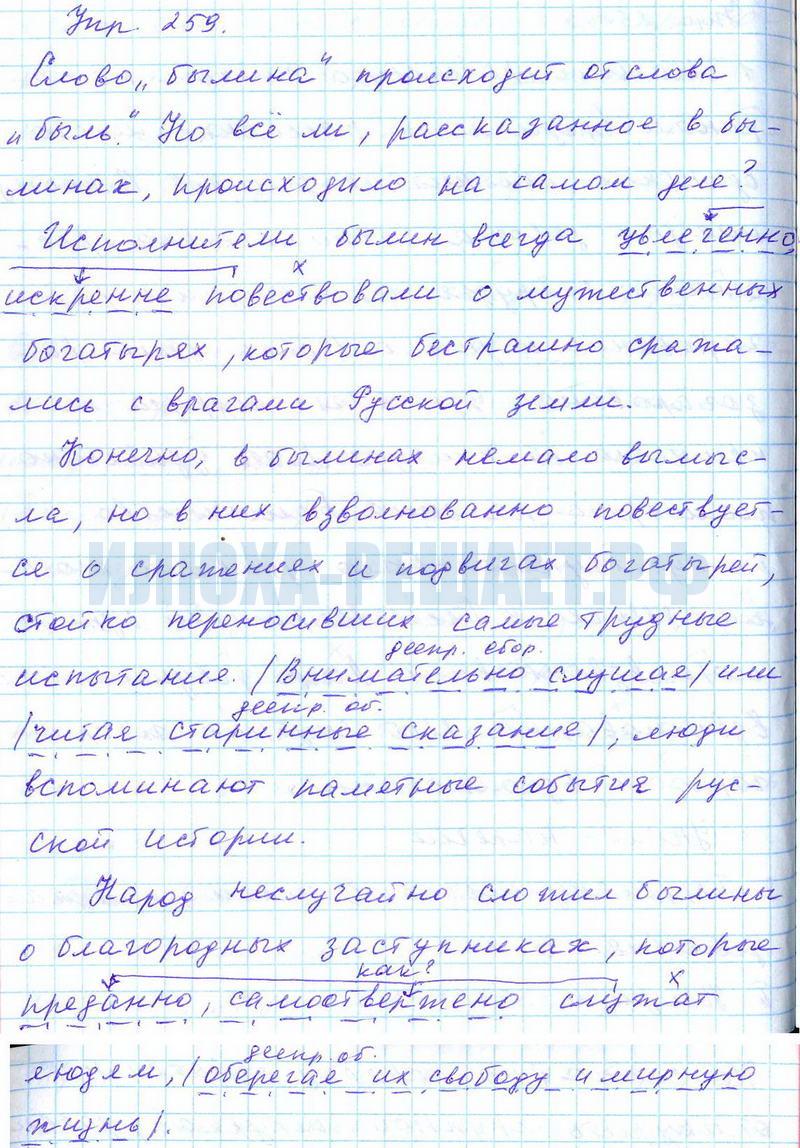 Упр. 259.
Слово „былина" происходит от слова
„быль." Но всё ли, рассказанное в бы-
линах, происходило на самом деле?
Исполнители былин всегда увлеченно,
х
искренне повествовали о мужественных
богатырях, которые бестрашно сража-
лись с врагами Русской земли.
Конечно, в былинах немало вымыс-
ла, но в них взволнованно повествует-
ся о сражениях и подвигах богатырей,
ИЛЮХА-РЕШАЕТ.РФ
стойко переносивших самые трудные
деепр. обор.
испытания. /Внимательно слушая/ или
деепр. об.
/читая старинные сказания/, люди
вспоминают памятные события рус-
ской истории.
Народ неслучайно сложил былины
о благородных заступниках, которые
как? х
преданно, самоотвержено служат
деепр. об.
людям, /оберегая их свободу и мирную
жизнь/.